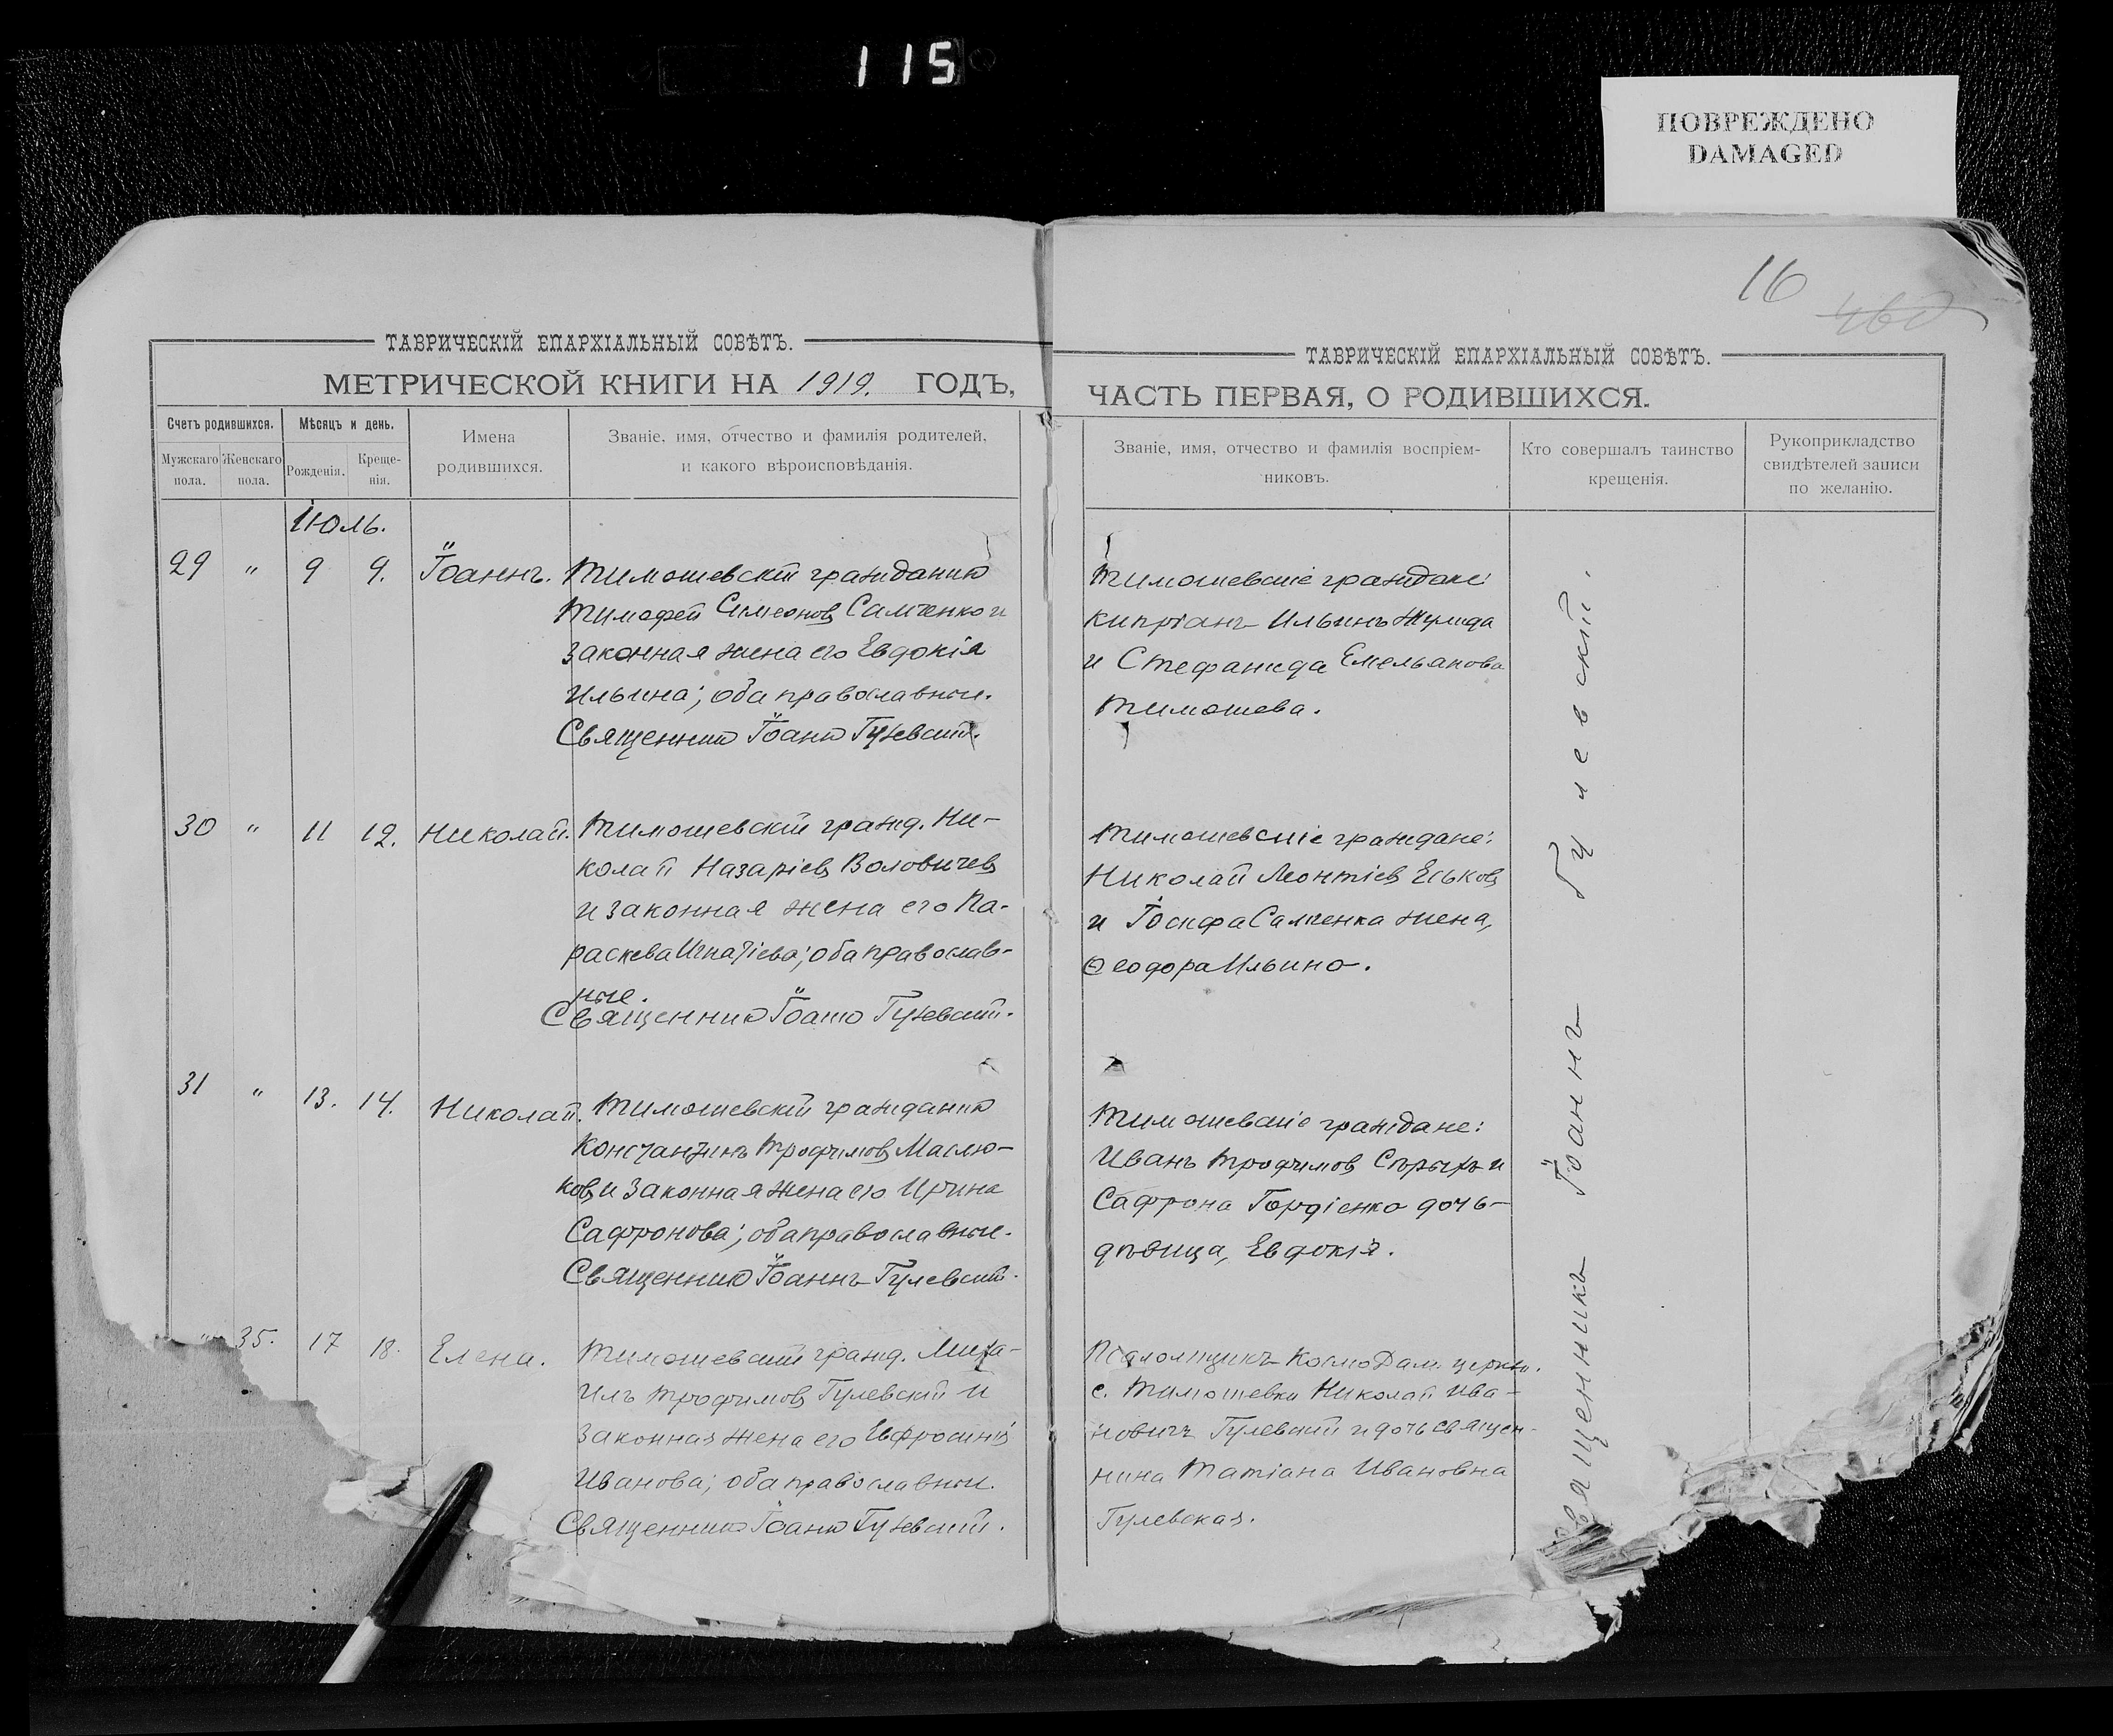 115
ПОВРЕЖДЕНО
DAMAGED
16
ТАВРИЧЕСКІЙ ЕПАРХІАЛЬНЫЙ СОВѢТЪ.
МЕТРИЧЕСКОЙ КНИГИ НА 1919. ГОДЪ,
Счетъ родившихся.
Мужскаго пола.
Женскаго пола.
Мѣсяцъ и день.
Рожденія.
Креще-
нія.
Имена
родившихся.
Званіе, имя, отчество и фамилія родителей,
и какого вѣроисповѣданія.
Іюль.
29 " 9 9. Іоаннъ. Тимошевскій гражданинъ
Тимофей Симеоновъ Самченко и
законная жена его Евдокія
Ильина; оба православные.
Священникъ Іоаннъ Гулевскій.
30 " 11 12. Николай. Тимошевскій гражд. Ни-
колай Назаріевъ Воловичевъ
и законная жена его Па-
раскева Игнатіева; оба православ-
ные.
Священникъ Іоаннъ Гулевскій.
31 " 13. 14. Николай. Тимошевскій гражданинъ
Константинъ Трофимовъ Маслю-
ковъ и законная жена его Ирина
Сафронова; оба православные.
Священникъ Іоаннъ Гулевскій.
" 35. 17 18. Елена. Тимошевскій гражд. Миха-
илъ Трофимовъ Гулевскій и
законная жена его Евфросинія
Иванова; оба православные.
Священникъ Іоаннъ Гулевскій.
ТАВРИЧЕСКІЙ ЕПАРХІАЛЬНЫЙ СОВѢТЪ.
ЧАСТЬ ПЕРВАЯ, О РОДИВШИХСЯ.
Званіе, имя, отчество и фамилія воспріем-
никовъ.
Кто совершалъ таинство
крещенія.
Рукоприкладство
свидѣтелей записи
по желанію.
Тимошевскіе граждане:
Кипріанъ Ильинъ Жулида
и Стефанида Емельянова
Тимошева.
Тимошевскіе граждане:
Николай Леонтіевъ Еськовъ
и Іосифа Самченка жена,
Ѳеодора Ильина.
Тимошевскіе граждане:
Иванъ Трофимовъ и
Сафрона Гордіенко дочь-
дѣвица, Евдокія.
Псаломщикъ Космо Дам. церкви.
с. Тимошевки Николай Ива-
новичъ Гулевскій и дочь священ-
ника Татіана Ивановна
Гулевская.
Священникъ Іоаннъ Гулевскій.